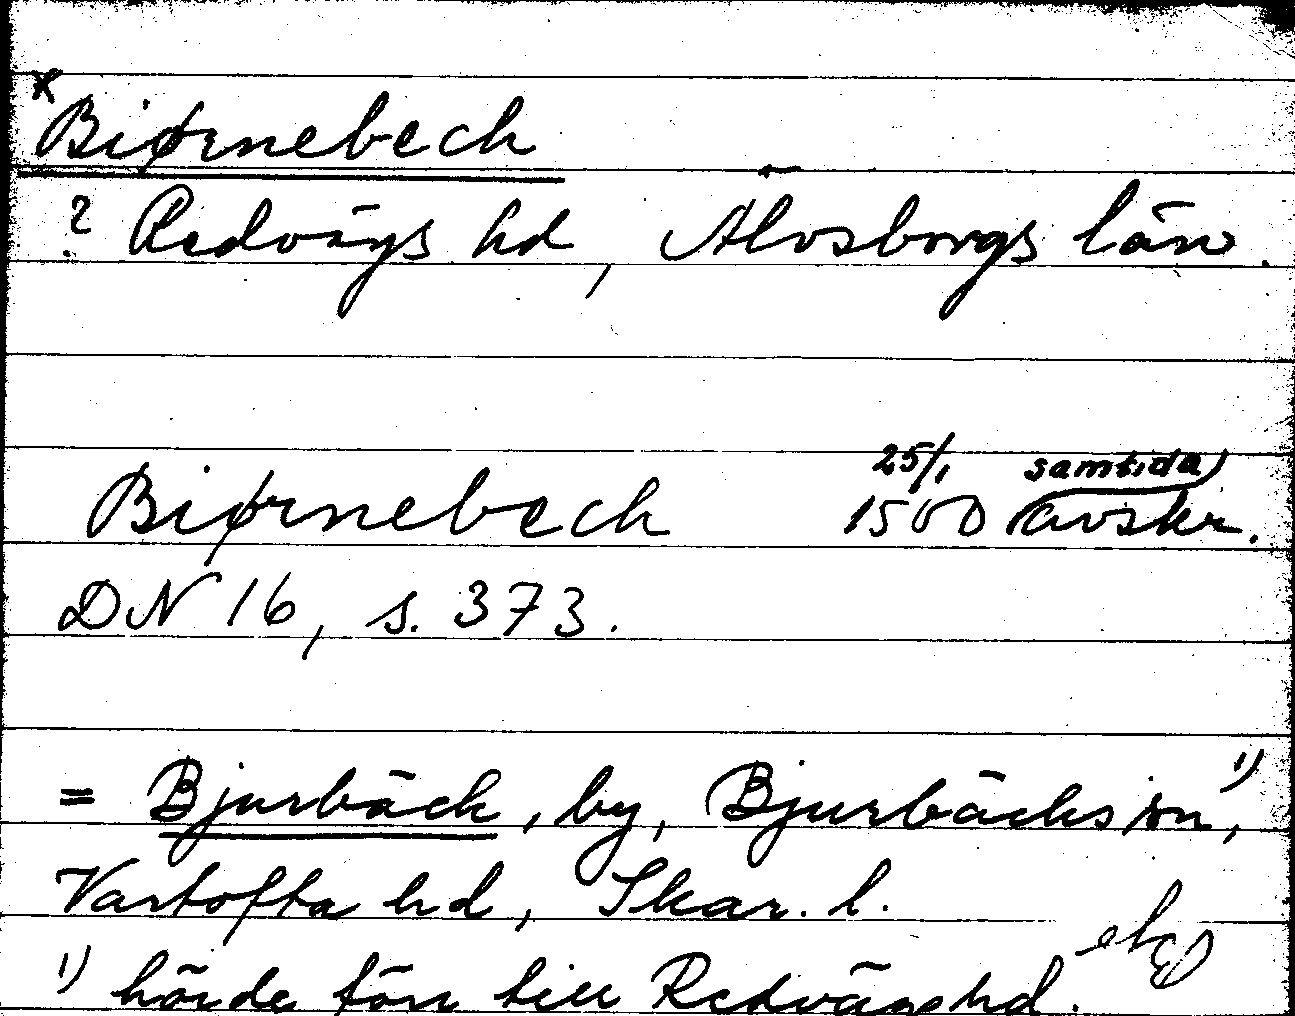 x
Biørnebech
? Redvägs hd, Älvsborgs län.
Biørnebech 25/1 1500 (samtida) avskr.
DN 16, s. 373.
= Bjurbäck, by, Bjurbäcks sn 1),
Vartofta hd, Skar. l.
1) hörde förr till Redvägs hd.